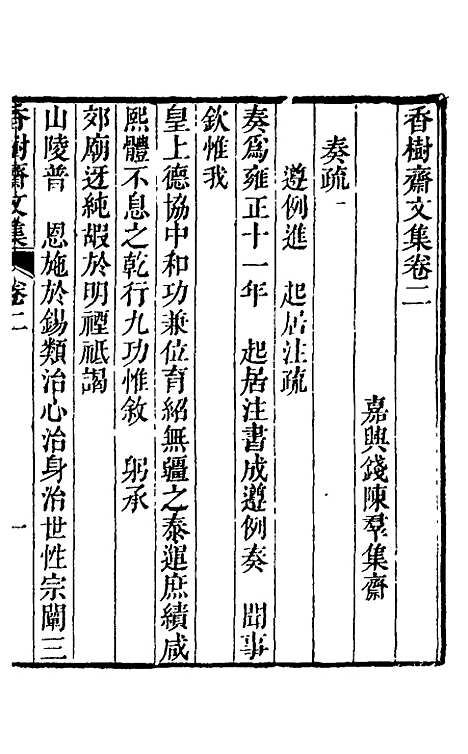 香樹齋文集卷二
嘉興錢陳羣集齋
奏疏一
遵例進 起居注疏
奏爲雍正十一年 起居注書成遵例奏 聞事
欽惟我
皇上德協中和功兼位育紹無疆之泰運庶績咸
熙體不息之乾行九功惟敘 躬承
郊廟迓純嘏於明禋祗謁
山陵普 恩施於錫類治心治身治世性宗闡三
香樹齋文集 卷二 一